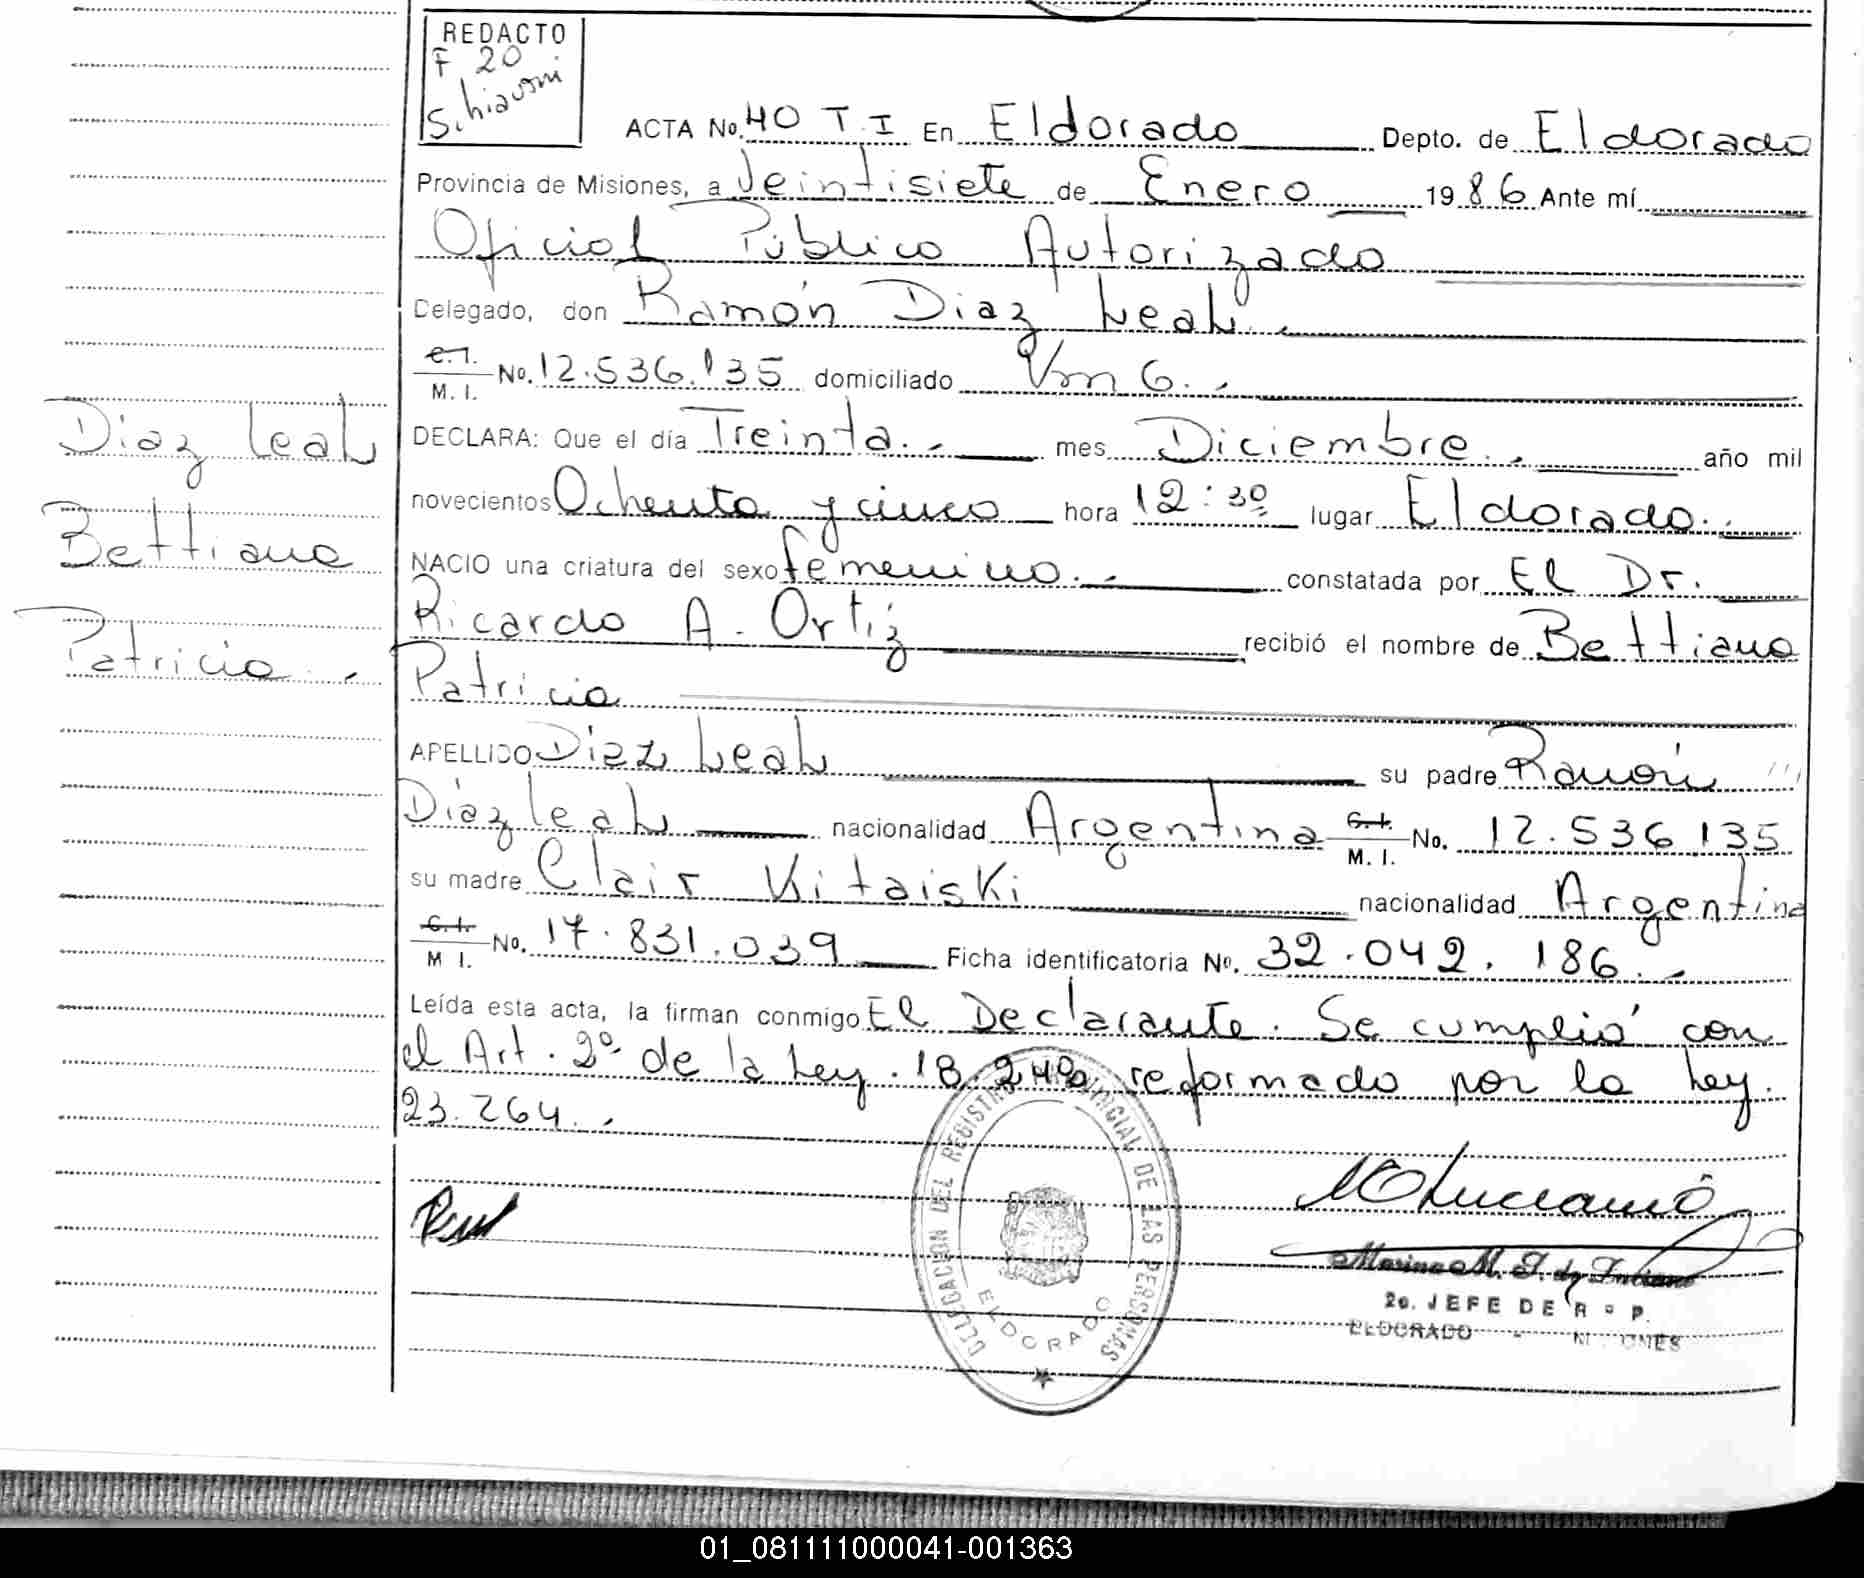 REDACTO
F 20
Schiavoni
ACTA No. 40 T. I En Eldorado Depto. de Eldorado
Provincia de Misiones, a Veintisiete de Enero 1986 Ante mí
Oficial Público Autorizado
Delegado, don Ramón Diaz Leal.
C.I. M. I. No. 12.536.135 domiciliado Km 6.
DECLARA: Que el día Treinta. mes Diciembre. año mil
novecientos Ochenta y cinco hora 12:30 lugar Eldorado.
NACIO una criatura del sexo femenino. constatada por El Dr.
Ricardo A. Ortiz recibió el nombre de Bettiana
Patricia
APELLIDO Diaz Leal su padre Ramón
Díaz Leal nacionalidad Argentina C.I. M. I. No. 12.536.135
su madre Clair Kitaiski nacionalidad Argentina
C.I. M I. No. 17.831.039 Ficha identificatoria No. 32.042.186.
Leída esta acta, la firman conmigo El Declarante. Se cumplió con
el Art. 2º de la Ley. 18.248 reformado por la Ley.
23.264.
Diaz Leal
Bettiana
Patricia.
DELEGACION DEL REGISTRO PROVINCIAL DE LAS PERSONAS
ELDORADO
Marina M. T. de Luciano
2o. JEFE DE R P.
ELDORADO - MISIONES
01_081111000041-001363